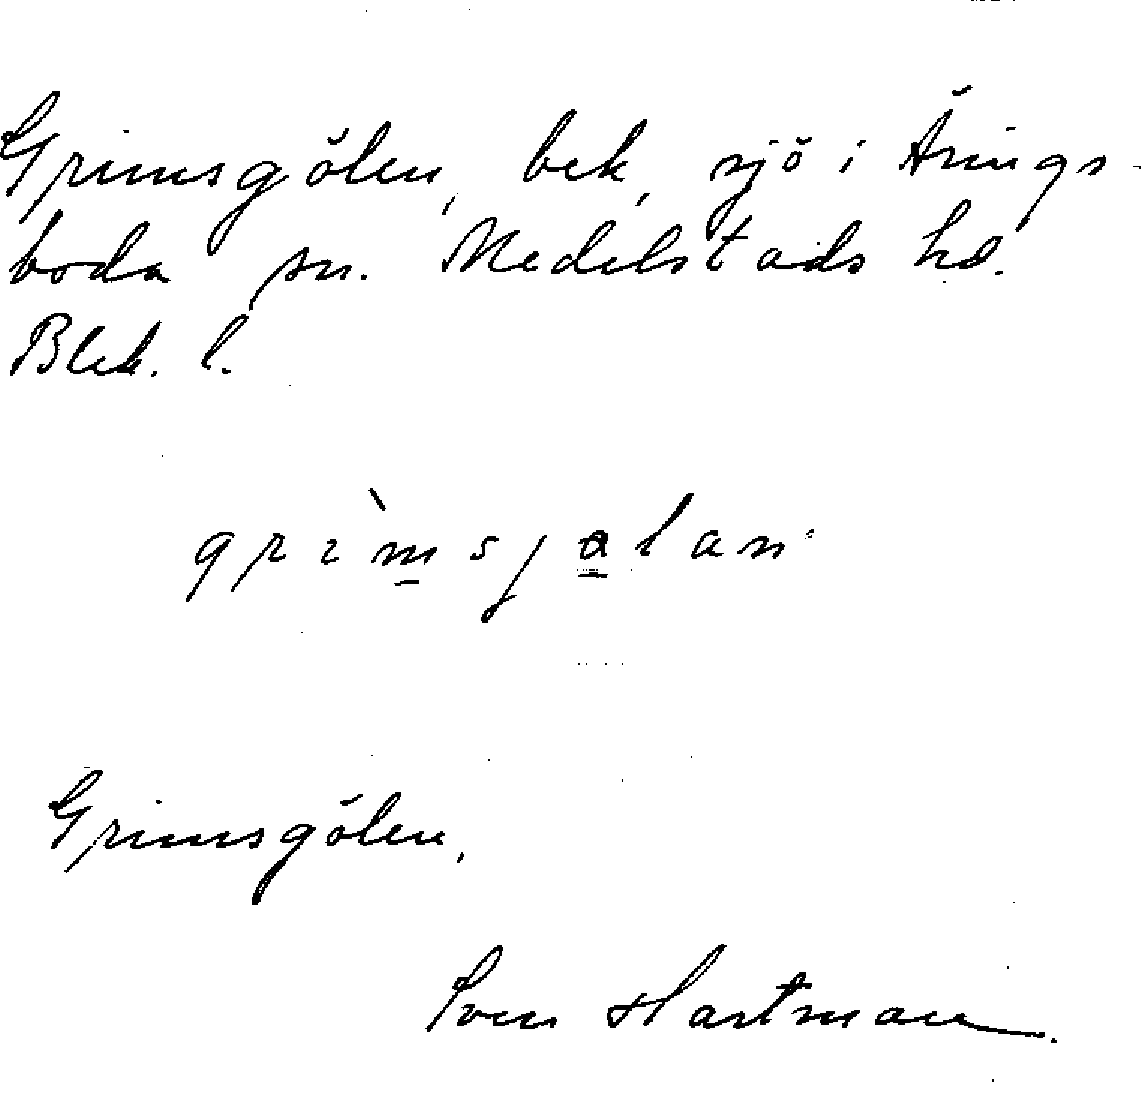 Grimsgölen, bek, sjö i Årings-
boda sn. Medelstads hd.
Blek. l.
grìmsjalan
Grimsgölen,
Sven Hartman.